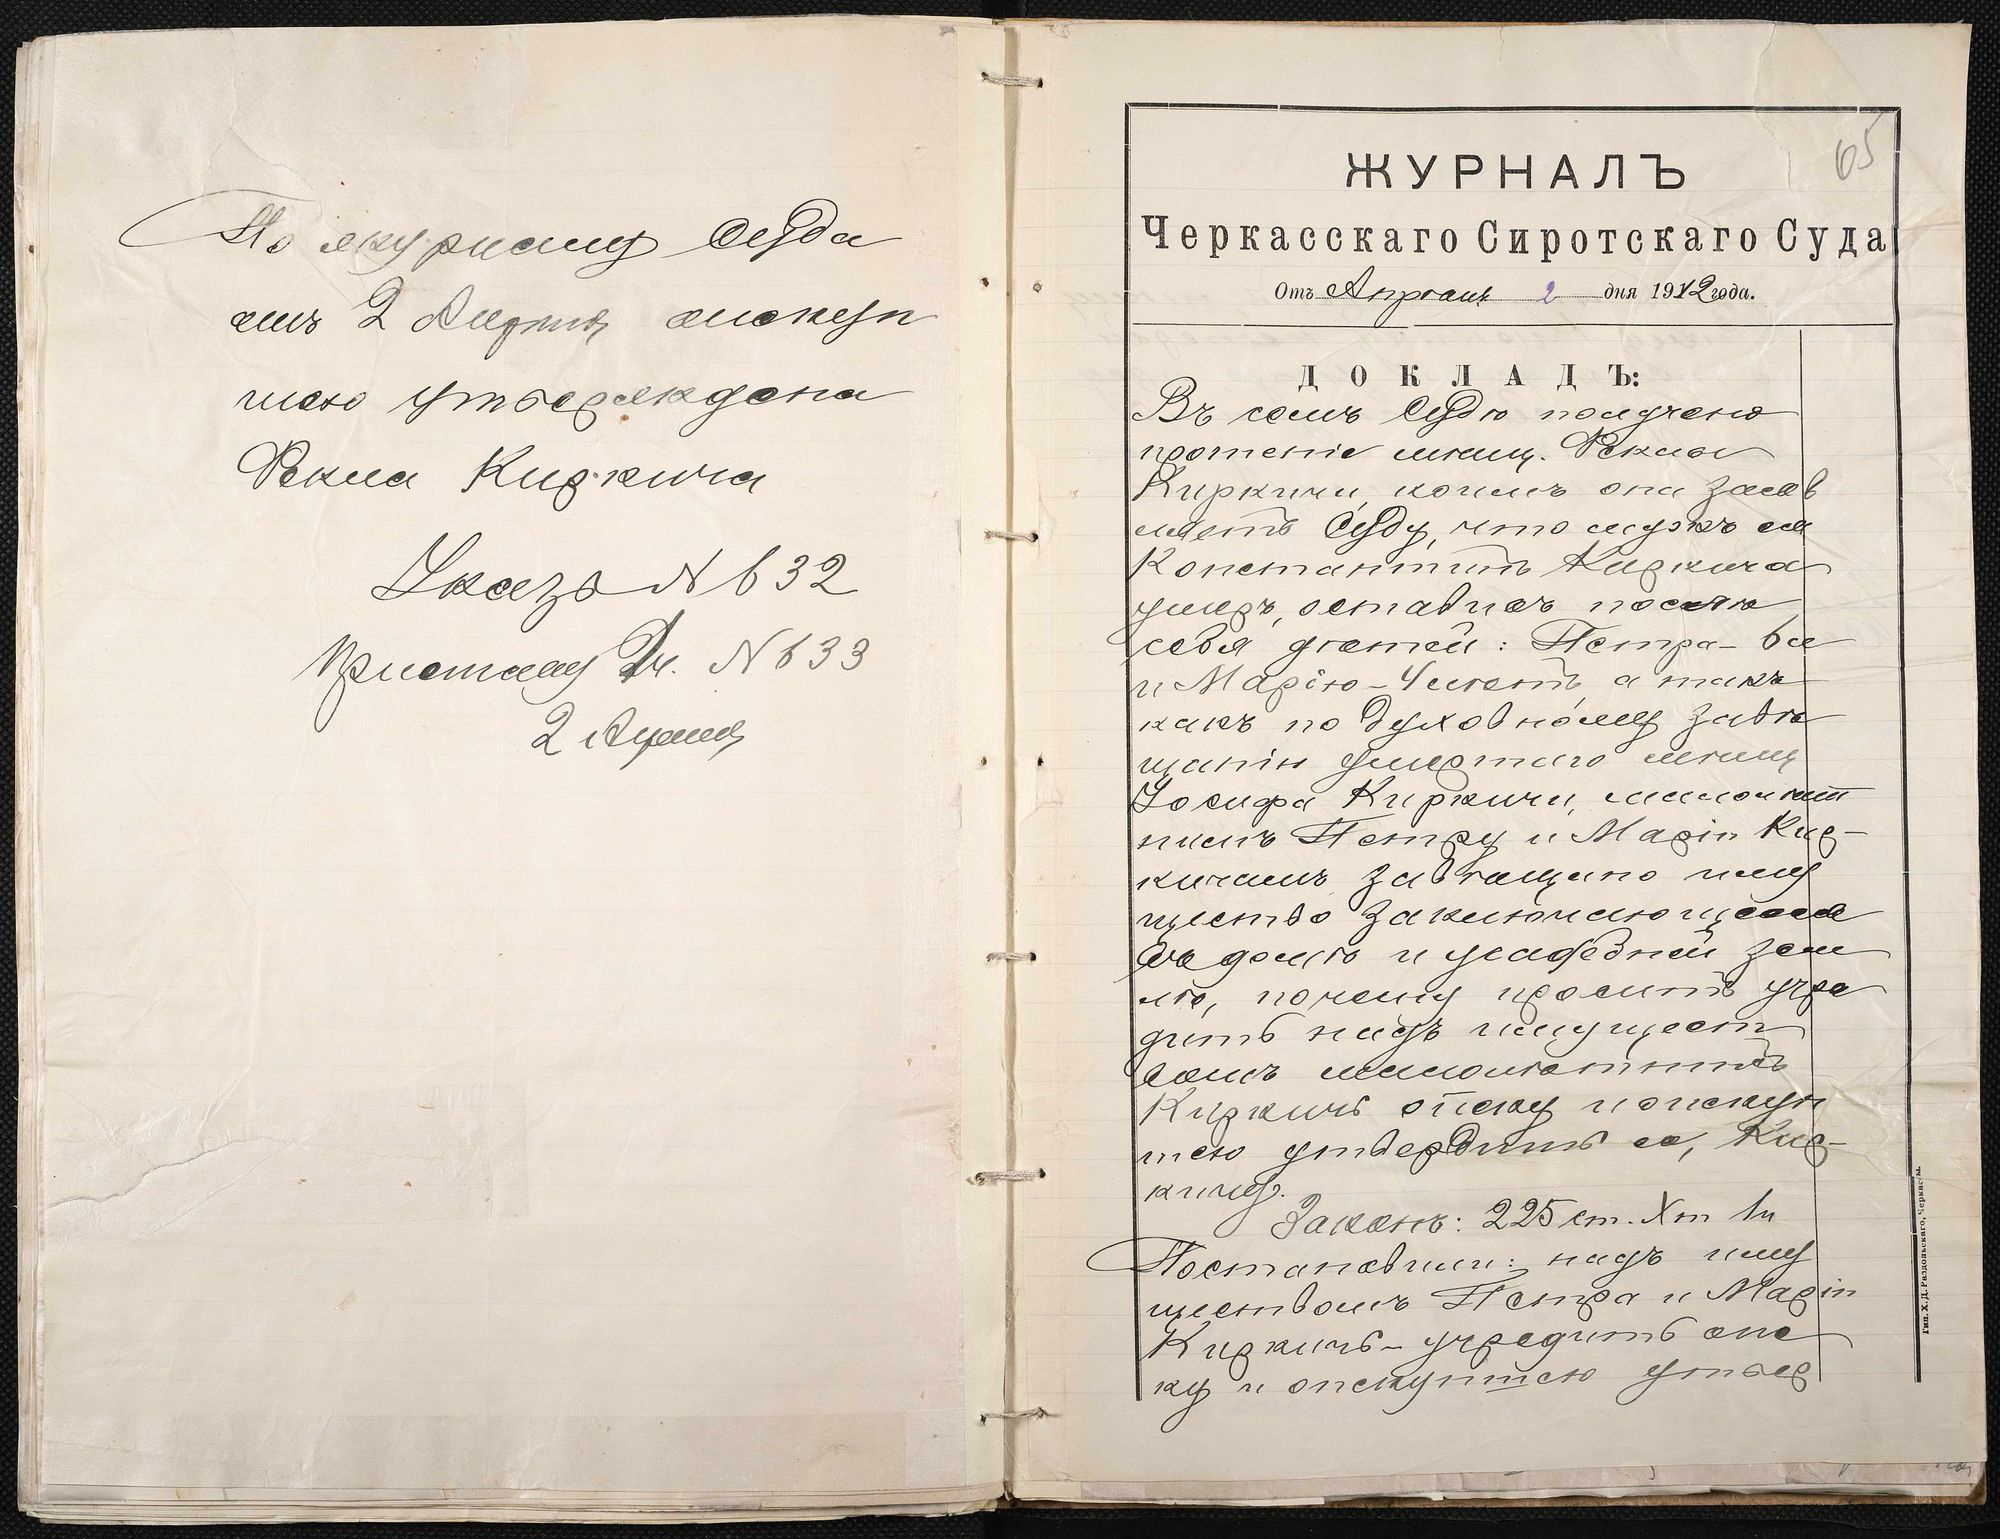 По журналу Суда
отъ 2 Апрѣля опекун
шею утверждена
Фекла Киркича
Указъ № 632
Приставу 2 ч. № 633
2 Апрѣля
65
ЖУРНАЛЪ
Черкасскаго Сиротскаго Суда
Отъ Апрѣля 2 дня 1912 года.
ДОКЛАДЪ:
Въ семъ Судѣ получено
прошеніе мѣщ. Феклы
Киркичи, коимъ она заяв
ляетъ Суду, что мужъ ея
Константинъ Киркича
умеръ, оставивъ послѣ
себя дѣтей: Петра – 6 л
и Марію – 4 лѣтъ, а такъ
какъ по духовному завѣ
щанію умершаго мѣщ
Іосифа Киркичи, малолѣт
нимъ Петру и Маріи Кир–
кичамъ завѣщано иму
щество заключающееся
въ домѣ и усадебной зем
лѣ, почему проситъ учре
дить надъ имущест
вомъ малолѣтнихъ
Киркичъ опеку и опекун
шею утвердить ее, Кир–
кичу.
Законъ: 225 ст. X т 1 ч
Постановили: надъ иму
ществомъ Петра и Маріи
Киркичъ – учредить опе
ку и опекуншею утвер
Тип. Х. Д. Раздольскаго, Черкассы.